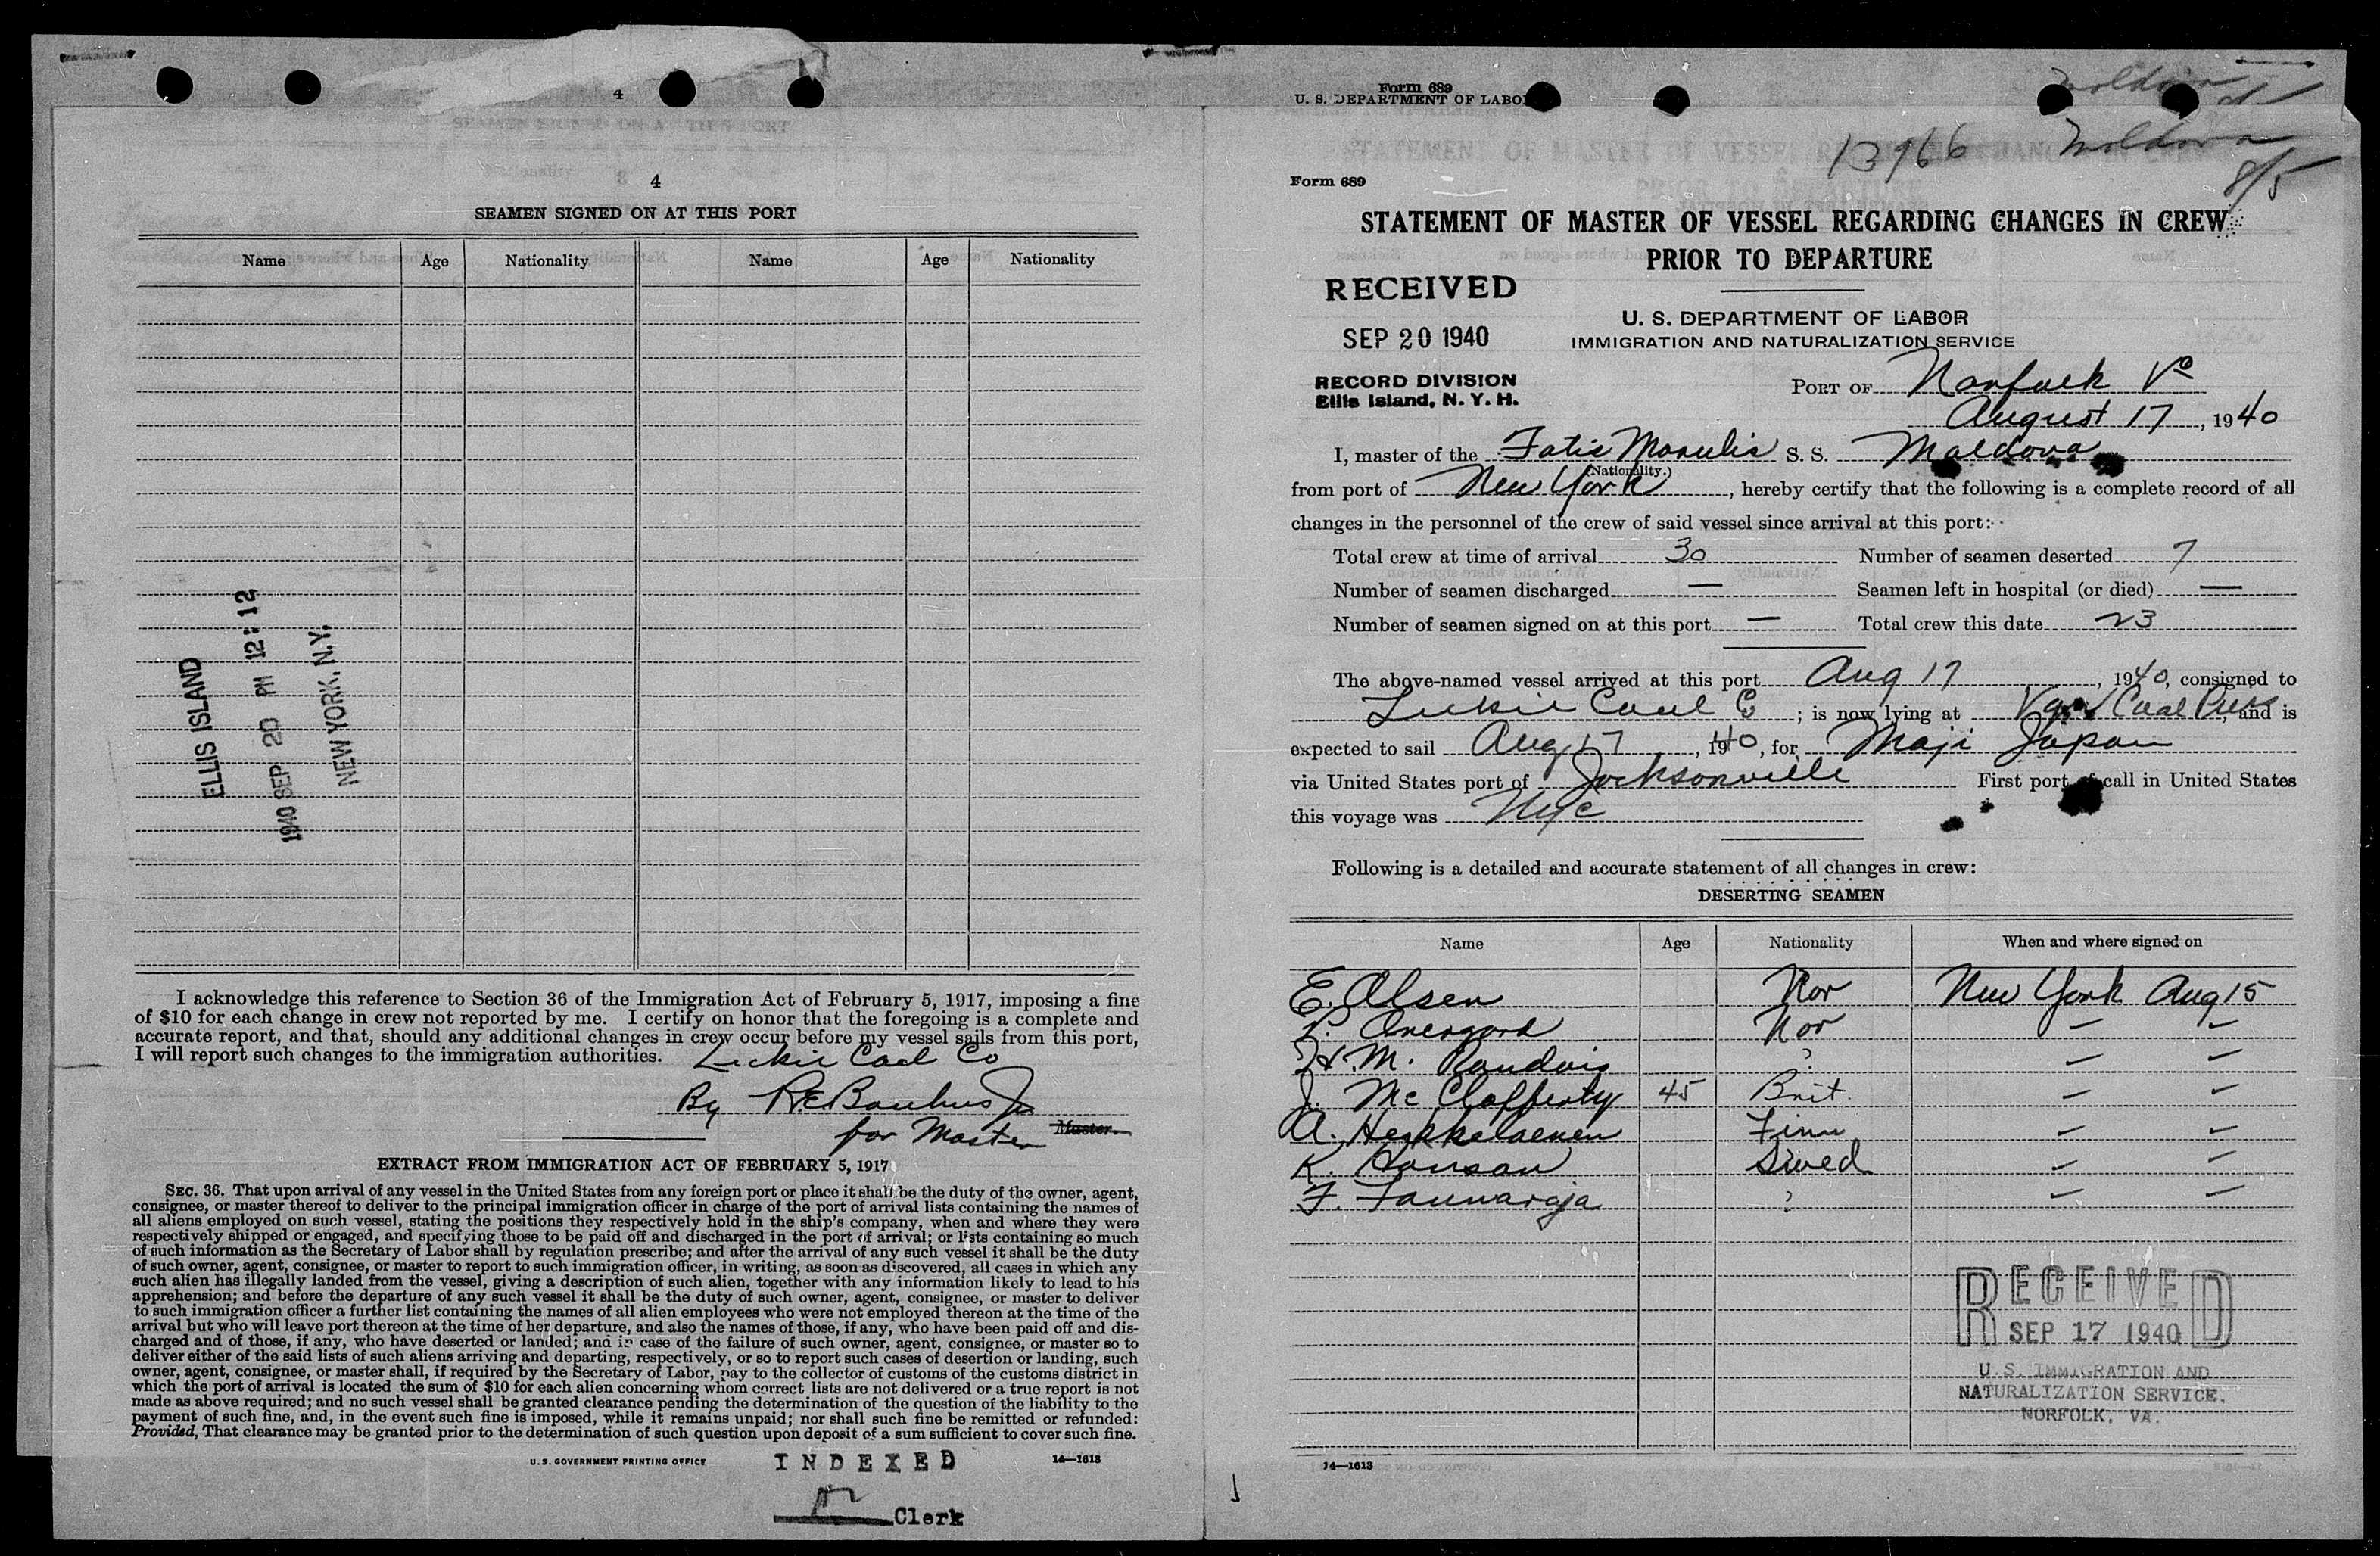 4
4
SEAMEN SIGNED ON AT THIS PORT
Name Age Nationality Name Age Nationality
ELLIS ISLAND
1940 SEP 20 PM 12:12
NEW YORK, N.Y.
I acknowledge this reference to Section 36 of the Immigration Act of February 5, 1917, imposing a fine
of $10 for each change in crew not reported by me. I certify on honor that the foregoing is a complete and
accurate report, and that, should any additional changes in crew occur before my vessel sails from this port,
I will report such changes to the immigration authorities.
Leckie Coal Co
By
for Master Master.
EXTRACT FROM IMMIGRATION ACT OF FEBRUARY 5, 1917
SEC. 36. That upon arrival of any vessel in the United States from any foreign port or place it shall be the duty of the owner, agent,
consignee, or master thereof to deliver to the principal immigration officer in charge of the port of arrival lists containing the names of
all aliens employed on such vessel, stating the positions they respectively hold in the ship's company, when and where they were
respectively shipped or engaged, and specifying those to be paid off and discharged in the port of arrival; or lists containing so much
of such information as the Secretary of Labor shall by regulation prescribe; and after the arrival of any such vessel it shall be the duty
of such owner, agent, consignee, or master to report to such immigration officer, in writing, as soon as discovered, all cases in which any
such alien has illegally landed from the vessel, giving a description of such alien, together with any information likely to lead to his
apprehension; and before the departure of any such vessel it shall be the duty of such owner, agent, consignee, or master to deliver
to such immigration officer a further list containing the names of all alien employees who were not employed thereon at the time of the
arrival but who will leave port thereon at the time of her departure, and also the names of those, if any, who have been paid off and dis-
charged and of those, if any, who have deserted or landed; and in case of the failure of such owner, agent, consignee, or master so to
deliver either of the said lists of such aliens arriving and departing, respectively, or so to report such cases of desertion or landing, such
owner, agent, consignee, or master shall, if required by the Secretary of Labor, pay to the collector of customs of the customs district in
which the port of arrival is located the sum of $10 for each alien concerning whom correct lists are not delivered or a true report is not
made as above required; and no such vessel shall be granted clearance pending the determination of the question of the liability to the
payment of such fine, and, in the event such fine is imposed, while it remains unpaid; nor shall such fine be remitted or refunded:
Provided, That clearance may be granted prior to the determination of such question upon deposit of a sum sufficient to cover such fine.
U.S. GOVERNMENT PRINTING OFFICE 14—1613
INDEXED
Clerk
Form 689
U. S. DEPARTMENT OF LABOR
13966 Moldova
8/5
Form 689
STATEMENT OF MASTER OF VESSEL REGARDING CHANGES IN CREW
PRIOR TO DEPARTURE
RECEIVED
SEP 20 1940
RECORD DIVISION
Ellis Island, N. Y. H.
U. S. DEPARTMENT OF LABOR
IMMIGRATION AND NATURALIZATION SERVICE
PORT OF Norfolk Va
August 17, 1940
I, master of the Fatis Moraulis S. S. Moldova
(Nationality.)
from port of New York, hereby certify that the following is a complete record of all
changes in the personnel of the crew of said vessel since arrival at this port:
Total crew at time of arrival 30 Number of seamen deserted 7
Number of seamen discharged — Seamen left in hospital (or died) —
Number of seamen signed on at this port — Total crew this date 23
The above-named vessel arrived at this port Aug 17, 1940, consigned to
Leckie Coal Co; is now lying at Vgn Coal Piers, and is
expected to sail Aug 17, 1940, for Moji Japan
via United States port of Jacksonville First port of call in United States
this voyage was NYC
Following is a detailed and accurate statement of all changes in crew:
DESERTING SEAMEN
Name Age Nationality When and where signed on
E. Olsen Nor New York Aug 15
Nor — —
H. M. ? — —
J. McClafferty 45 Brit. — —
A. Finn — —
K. Swed — —
F. ? — —
RECEIVED
SEP 17 1940
U.S. IMMIGRATION AND
NATURALIZATION SERVICE,
NORFOLK, VA.
14—1613